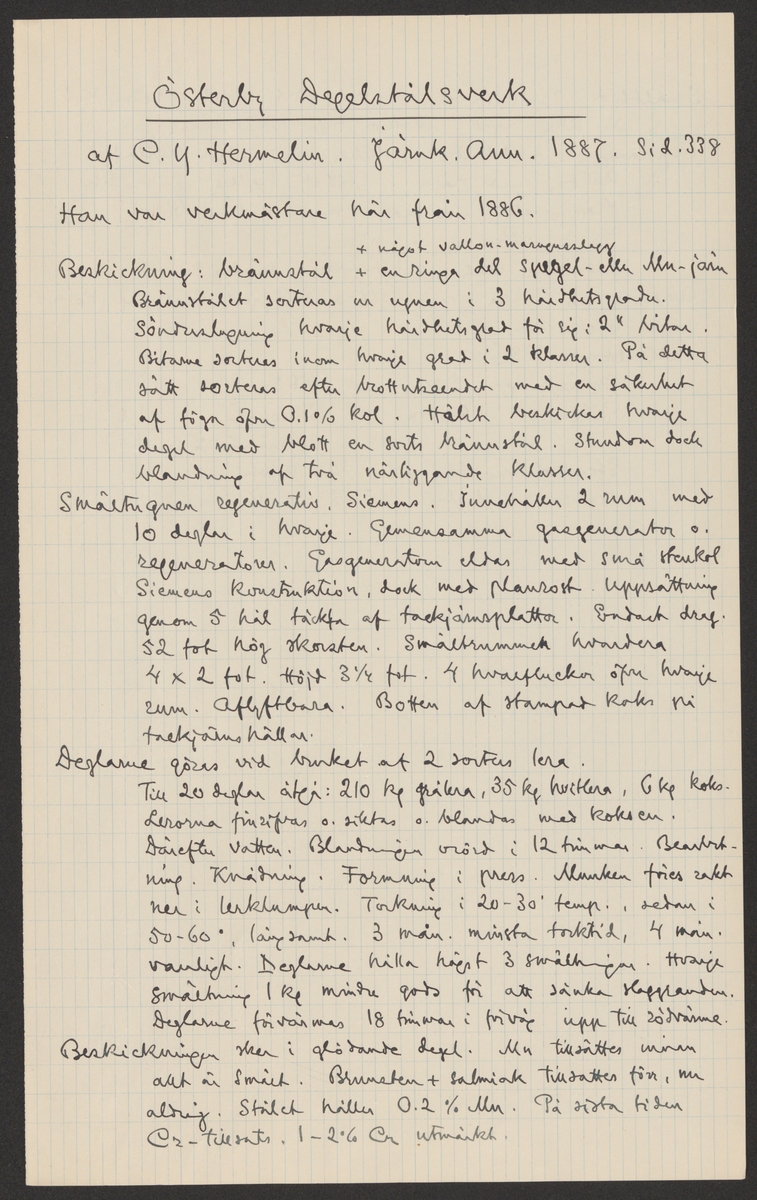 Österby Degelstålsverk
af C. Y. Hermelin. Järnk. Ann. 1887. Sid. 338
Han var verkmästare här från 1886.
+ något vallon-masugnsslagg
Beskickning: brännstål + en ringa del spegel- eller Mn-järn
Brännstålet sorteras ur ugnen i 3 hårdhetsgrader.
Sönderslagning hvarje hårdhetsgrad för sig i 2" bitar.
Bitarne sorteras inom hvarje grad i 2 klasser. På detta
sätt sorteras efter brottutseendet med en säkerhet
af föga öfver 0.1% kol. Hälst beskickas hvarje
degel med blott en sorts brännstål. Stundom dock
blandning af två närliggande klasser.
Smältugnen regenerativ. Siemens. Innehåller 2 rum med
10 deglar i hvarje. Gemensamma gasgenerator o.
regeneratorer. Gasgeneratorn eldas med små stenkol
Siemens konstruktion, dock med planrost. Uppsättning
genom 5 hål täckta af tackjärnsplattor. Endast drag.
52 fot hög skorsten. Smältrummen hvardera
4 x 2 fot. Höjd 3 1/2 fot. 4 hvalfluckor öfver hvarje
rum. Aflyftbara. Botten af stampad koks på
tackjärnshällar.
Deglarne göras vid bruket af 2 sorters lera.
Till 20 deglar åtgå: 210 kg grålera, 35 kg hvitlera, 6 kg koks.
Lerorna finsifras o. siktas o. blandas med koksen.
Därefter vatten. Blandningen orörd i 12 timmar. Bearbet-
ning. Knådning. Formning i press. Munken föres rakt
ner i lerklumpen. Torkning i 20-30° temp., sedan i
50-60°, långsamt. 3 mån. minsta torktid, 4 mån.
vanligt. Deglarne hålla högst 3 smältningar. Hvarje
smältning 1 kg mindre gods för att sänka slaggranden.
Deglarne förvärmas 18 timmar i förväg upp till rödvärme.
Beskickningen sker i glödande degel. Mn tillsättes innan
allt är smält. Brunsten + salmiak tillsattes förr, nu
aldrig. Stålet håller 0.2 % Mn. På sista tiden
Cr-tillsats. 1-2% Cr utmärkt.